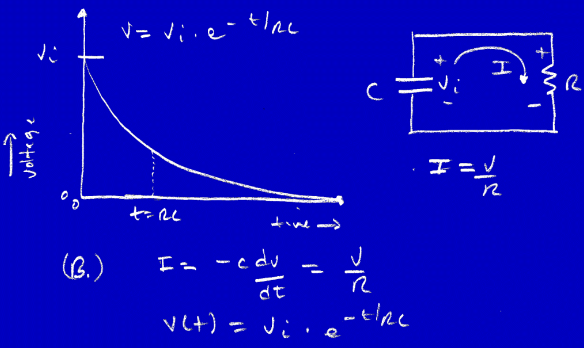 V = Vi . e^-t/RC
Vi
voltage
0
0
t=RC
time →
C
+
Vi
-
I
+
-
R
I = V/R
(B.) I = -c dv/dt = V/R
V(t) = Vi . e^-t/RC